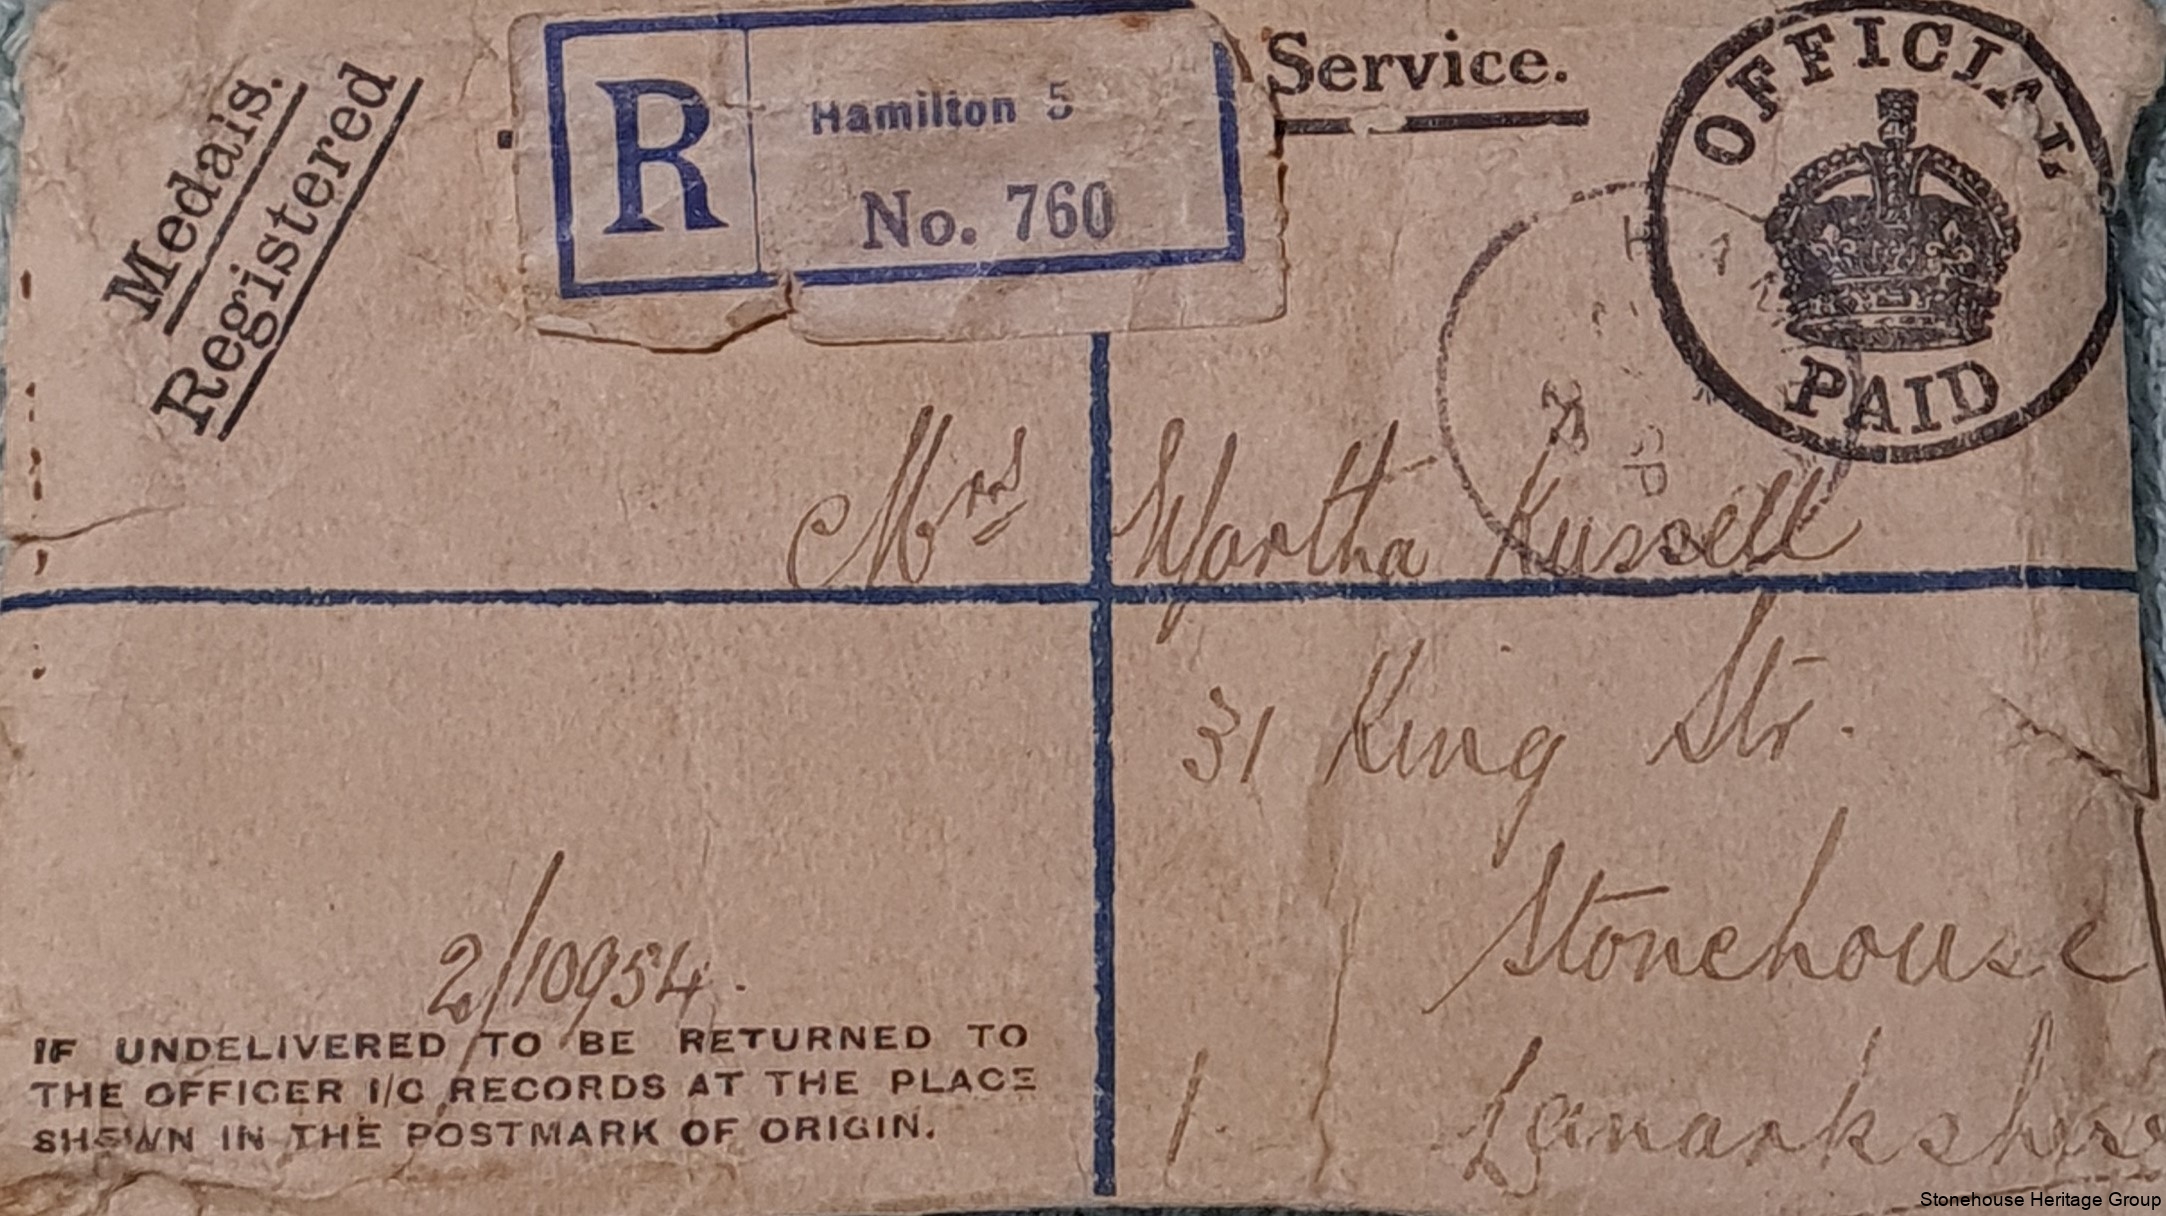 Medals.
Registered
R
Hamilton 5
No. 760
Service.
OFFICIAL
PAID
Mrs Martha Russell
31 King Str.
Stonehouse
Lanarkshire
2/10954.
1.
IF UNDELIVERED TO BE RETURNED TO
THE OFFICER I/C RECORDS AT THE PLACE
SHEWN IN THE POSTMARK OF ORIGIN.
Stonehouse Heritage Group